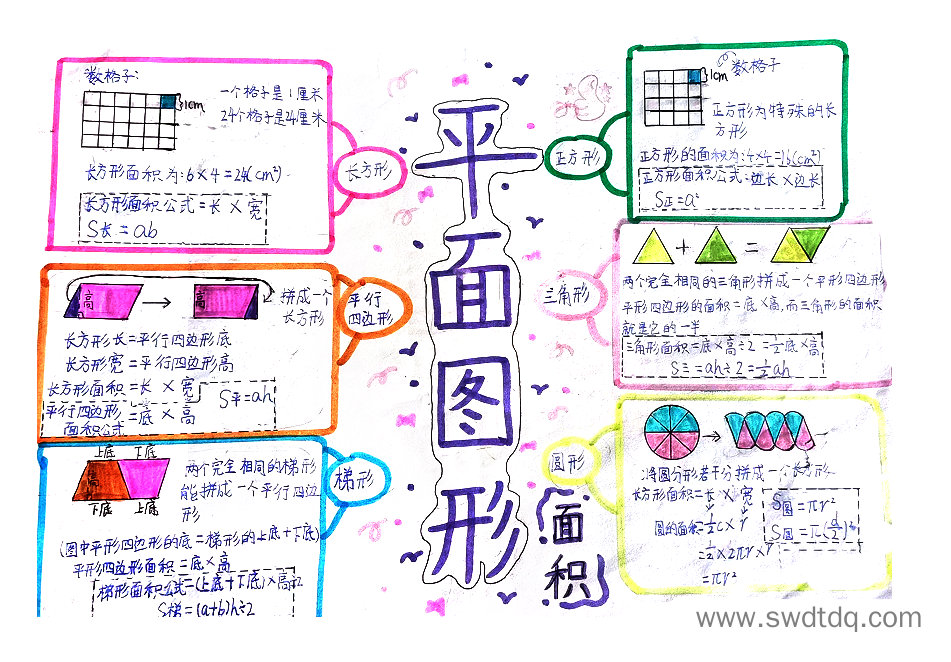 平面图形
面积
长方形
数格子:
1cm
一个格子是1厘米
24个格子是24厘米
长方形面积为:6×4=24(cm²)
长方形面积公式=长×宽
S长=ab
平行
四边形
高
高
拼成一个
长方形
长方形长=平行四边形底
长方形宽=平行四边形高
长方形面积=长×宽
平行四边形
面积公式
=底×高
S平=ah
梯形
上底 下底
高
下底 上底
两个完全相同的梯形
能拼成一个平行四边
形
(图中平形四边形的底=梯形的上底+下底)
平形四边形面积=底×高
梯形面积公式=(上底+下底)×高÷2
S梯=(a+b)h÷2
正方形
数格子
1cm
正方形为特殊的长
方形
正方形的面积为:4×4=16(cm²)
正方形面积公式:边长×边长
S正=a²
三角形
+ =
两个完全相同的三角形拼成一个平形四边形
平形四边形的面积=底×高,而三角形的面积
就是它的一半
三角形面积=底×高÷2=½底×高
S三=ah÷2=½ah
圆形
将圆分形若干分拼成一个长方形
长方形面积=长×宽
圆的面积=½c×r
=½×2πr×r
=πr²
S圆=πr²
www.swdtdq.com